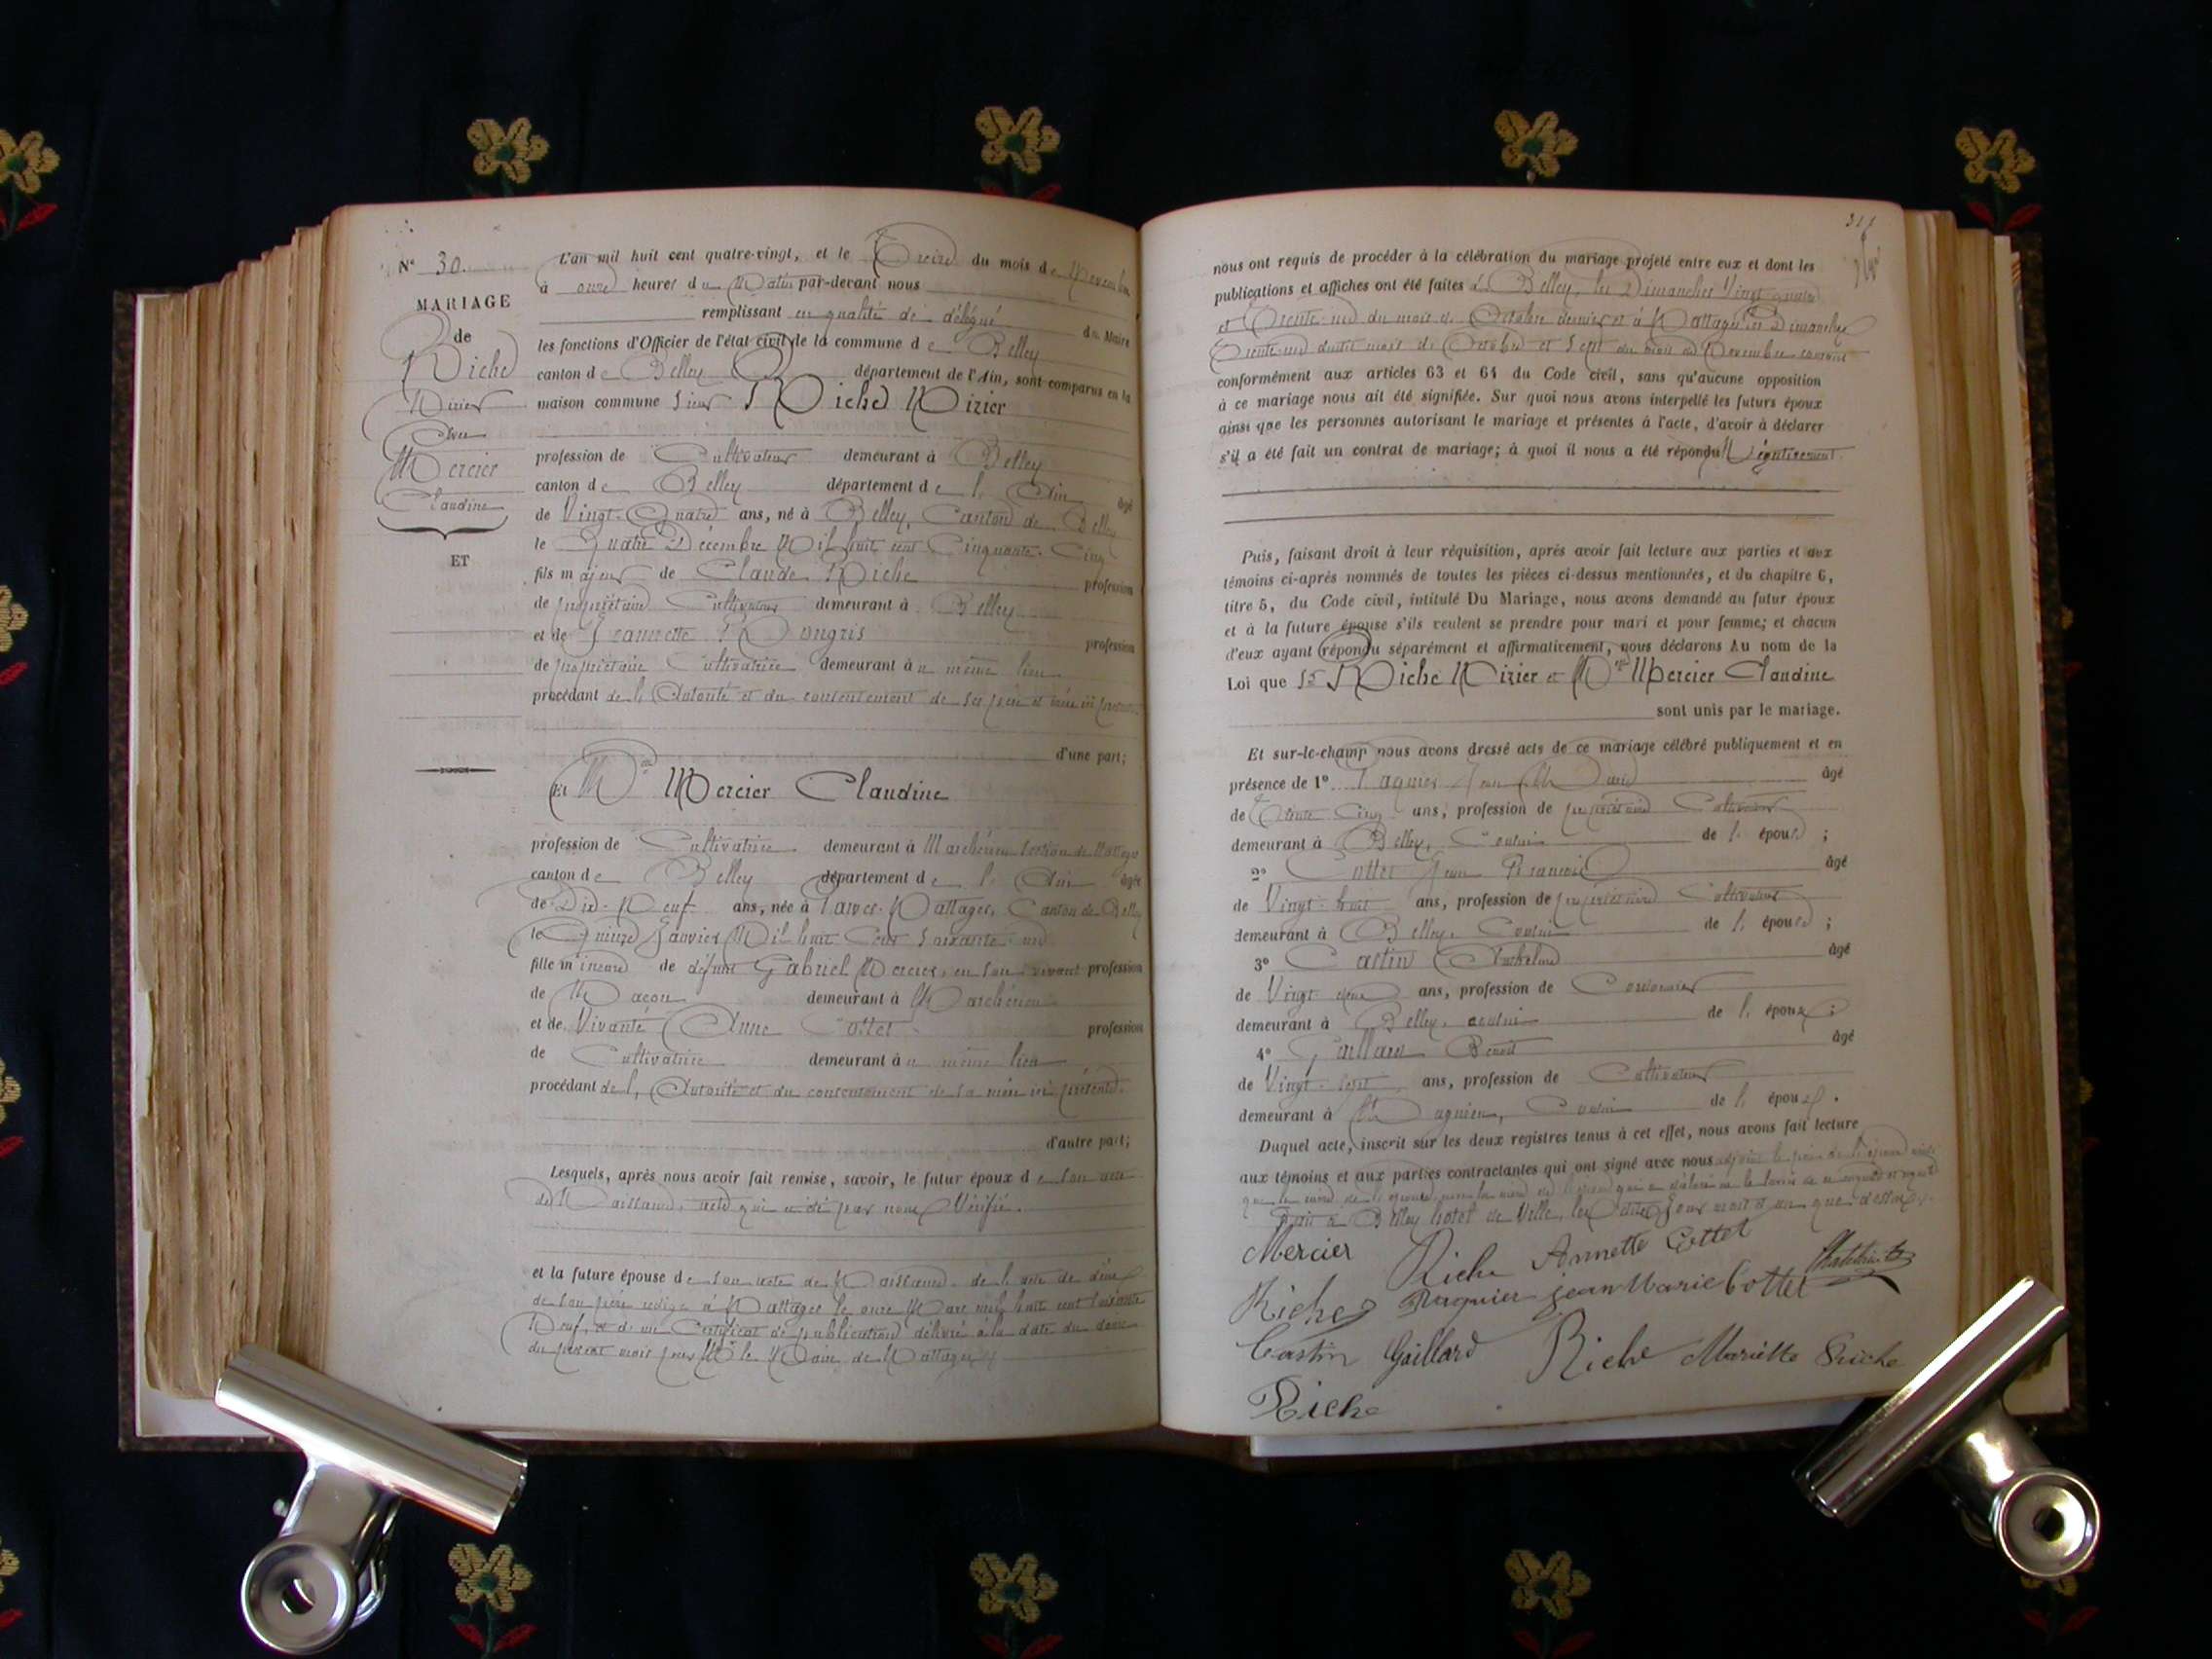 N° 30.
MARIAGE
de
Riche
Nizier
Avec
Mercier
Claudine
ET
L'an mil huit cent quatre-vingt, et le Treize du mois de Novembre
à onze heures du Matin par-devant nous
remplissant en qualité de délégué du Maire
les fonctions d'Officier de l'état civil de la commune de Belley
canton de Belley département de l'Ain, sont comparus en la
maison commune Sieur Riche Nizier
profession de Cultivateur demeurant à Belley
canton de Belley département de l'Ain âgé
de Vingt-Quatre ans, né à Belley, Canton de Belley
le Quatre Décembre Mil huit cent Cinquante-Cinq
fils majeur de Claude Riche profession
de propriétaire Cultivateur demeurant à Belley
et de Jeannette Pongris profession
de propriétaire Cultivatrice demeurant au même lieu
procédant de l'Autorité et du consentement de ses père et mère ici présents
d'une part;
Et Mlle Mercier Claudine
profession de Cultivatrice demeurant à section de Nattages
canton de Belley département de l'Ain âgée
de Dix-Neuf ans, née à Parves-Nattages, Canton de Belley
le Quinze Janvier Mil huit Cent Soixante-un
fille mineure de défunt Gabriel Mercier, en son vivant profession
de Maçon demeurant à
et de Vivante Anne Cottet profession
de Cultivatrice demeurant au même lieu
procédant de l'Autorité et du consentement de sa mère ici présente.
d'autre part;
Lesquels, après nous avoir fait remise, savoir, le futur époux de son acte
de Naissance, acte qui a été par nous Vérifié.
et la future épouse de son acte de Naissance, de l'acte de décès
de son père rédigé à Nattages le onze Mars mil huit cent soixante
Neuf, et d'un Certificat de publication délivré à la date du
du présent mois par Mr le Maire de Nattages
311
nous ont requis de procéder à la célébration du mariage projeté entre eux et dont les
publications et affiches ont été faites à Belley, les Dimanches Vingt-quatre
et Trente-un du mois d'Octobre dernier et à Nattages les Dimanches
Trente-un dudit mois d'Octobre et Sept du mois de Novembre courant
conformément aux articles 63 et 64 du Code civil, sans qu'aucune opposition
à ce mariage nous ait été signifiée. Sur quoi nous avons interpellé les futurs époux
ainsi que les personnes autorisant le mariage et présentes à l'acte, d'avoir à déclarer
s'il a été fait un contrat de mariage; à quoi il nous a été répondu Négativement.
Puis, faisant droit à leur réquisition, après avoir fait lecture aux parties et aux
témoins ci-après nommés de toutes les pièces ci-dessus mentionnées, et du chapitre 6,
titre 5, du Code civil, intitulé Du Mariage, nous avons demandé au futur époux
et à la future épouse s'ils veulent se prendre pour mari et pour femme; et chacun
d'eux ayant répondu séparément et affirmativement, nous déclarons Au nom de la
Loi que Sr Riche Nizier et Mlle Mercier Claudine
sont unis par le mariage.
Et sur-le-champ nous avons dressé acte de ce mariage célébré publiquement et en
présence de 1° Paquier Jean Marie âgé
de Trente Cinq ans, profession de propriétaire Cultivateur
demeurant à Belley, Cousin de l'épouse ;
2° Cottet Jean âgé
de Vingt-huit ans, profession de propriétaire Cultivateur
demeurant à Belley, Cousin de l'épouse ;
3° Castin Anthelme âgé
de Vingt ans, profession de Cordonnier
demeurant à Belley, cousin de l'époux ;
4° Gaillard Benoit âgé
de Vingt-sept ans, profession de Cultivateur
demeurant à Magnieu, Cousin de l'époux.
Duquel acte, inscrit sur les deux registres tenus à cet effet, nous avons fait lecture
aux témoins et aux parties contractantes qui ont signé avec nous
Fait à Belley hôtel de Ville, les dits Jour mois et an que dessus.
Mercier Riche Annette Cottet
Riche Paquier jean Marie Cottet
Castin Gaillard Riche Mariette Riche
Riche